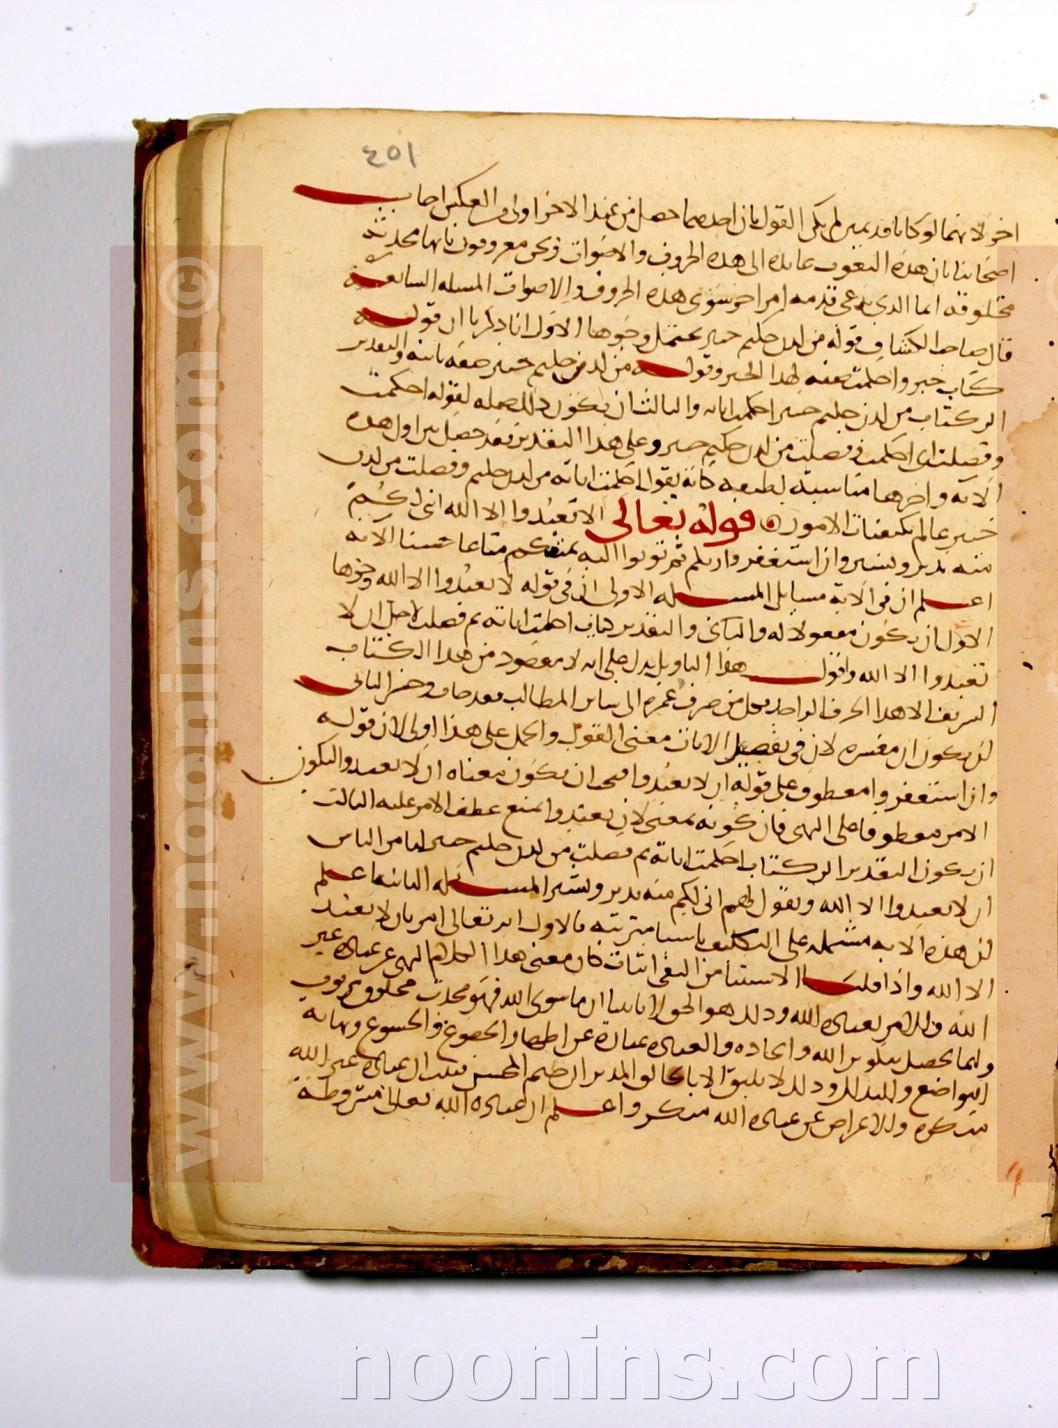 ٤٥١
اخر لانهما لو كانا قديمين لم يكن القول بان احدهما حصل من عند الاخر اولى من العكس اجاب
اصحابنا بان هذه النعوت عائدة الى هذه الحروف والاصوات ونحن معترفون بانها محدثة
مخلوقة انما الذي يدعى قدمه امر اخر سوى هذه الحروف والاصوات المسله السابعه
قال صاحب الكشاف قوله من لدن حكيم خبير يحتمل وجوها الاول انا ذكرنا ان قوله
كتاب خبر واحكمت صفه لهذا الخبر وقوله من لدن حكيم خبير صفه ثانيه والتقدير
الر كتاب من لدن حكيم خبير احكمت اياته والثالث ان يكون ذلك صله لقوله احكمت
وفصلت اى احكمت وفصلت من لدن حكيم خبير وعلى هذا التقدير فقد حصل بين اول هذه
الايه واخرها مناسبة لطيفه كانه يقول احكمت اياته من لدن حكيم وفصلت من لدن
خبير عالم بكيفيات الامور ۞ قوله تعالى الا تعبدوا الا الله اننى لكم
منه نذير وبشير وان استغفروا ربكم ثم توبوا اليه يمتعكم متاعا حسنا الايه
اعلم ان فى الاية مسايل المسله الاولى ان فى قوله لا تعبدوا الا الله وجوها
الاول ان يكون مفعولا له والتقدير كتاب احكمت اياته ثم فصلت لاجل ان لا
تعبدوا الا الله واقول هذا التاويل يدل على انه لا مقصود من هذا الكتاب
الشريف الا هذا الحرف الواحد فكل من صرف عمره الى سائر المطالب فقد خاب وخسر الثانى
ان يكون ان مفسره لان فى تفصيل الايات معنى القول والحمل على هذا اولى لان قوله
وان استغفروا معطوف على قوله ان لا تعبدوا فيجب ان يكون معناه ان لا تعبدوا ليكون
الامر معطوفا على النهى فان كونه بمعنى لان لا تعبدوا يمنع عطف الامر عليه الثالث
ان يكون التقدير الر كتاب احكمت اياته ثم فصلت من لدن حكيم خبير ليامر الناس
ان لا يعبدوا الا الله ويقول لهم انى لكم منه نذير وبشير المسله الثانيه اعلم
ان هذه الايه مشتمله على التكليف باشيا مترتبه فالاول انه تعالى امر بان لا تعبد
الا الله واذا قلنا الاستثنا من النفى اثبات كان معنى هذا الكلام النهى عن عبادة غير
الله والامر بعبادة الله وذلك هو الحق لانا بينا ان ما سوى الله فهو محدث مخلوق مربوب
وانما يحصل بتكوين الله وايجاده والعباده عبارة عن اظهار الخضوع والخشوع ونهايه
التواضع والتذلل وذلك لا يليق الا بالخالق المدبر الرحيم المحسن فثبت ان عبادة غير الله
منكره والاعراض عن عبادة الله منكر واعلم ان عبادة الله تعالى مشروطة
www.noonins.com ©
noonins.com